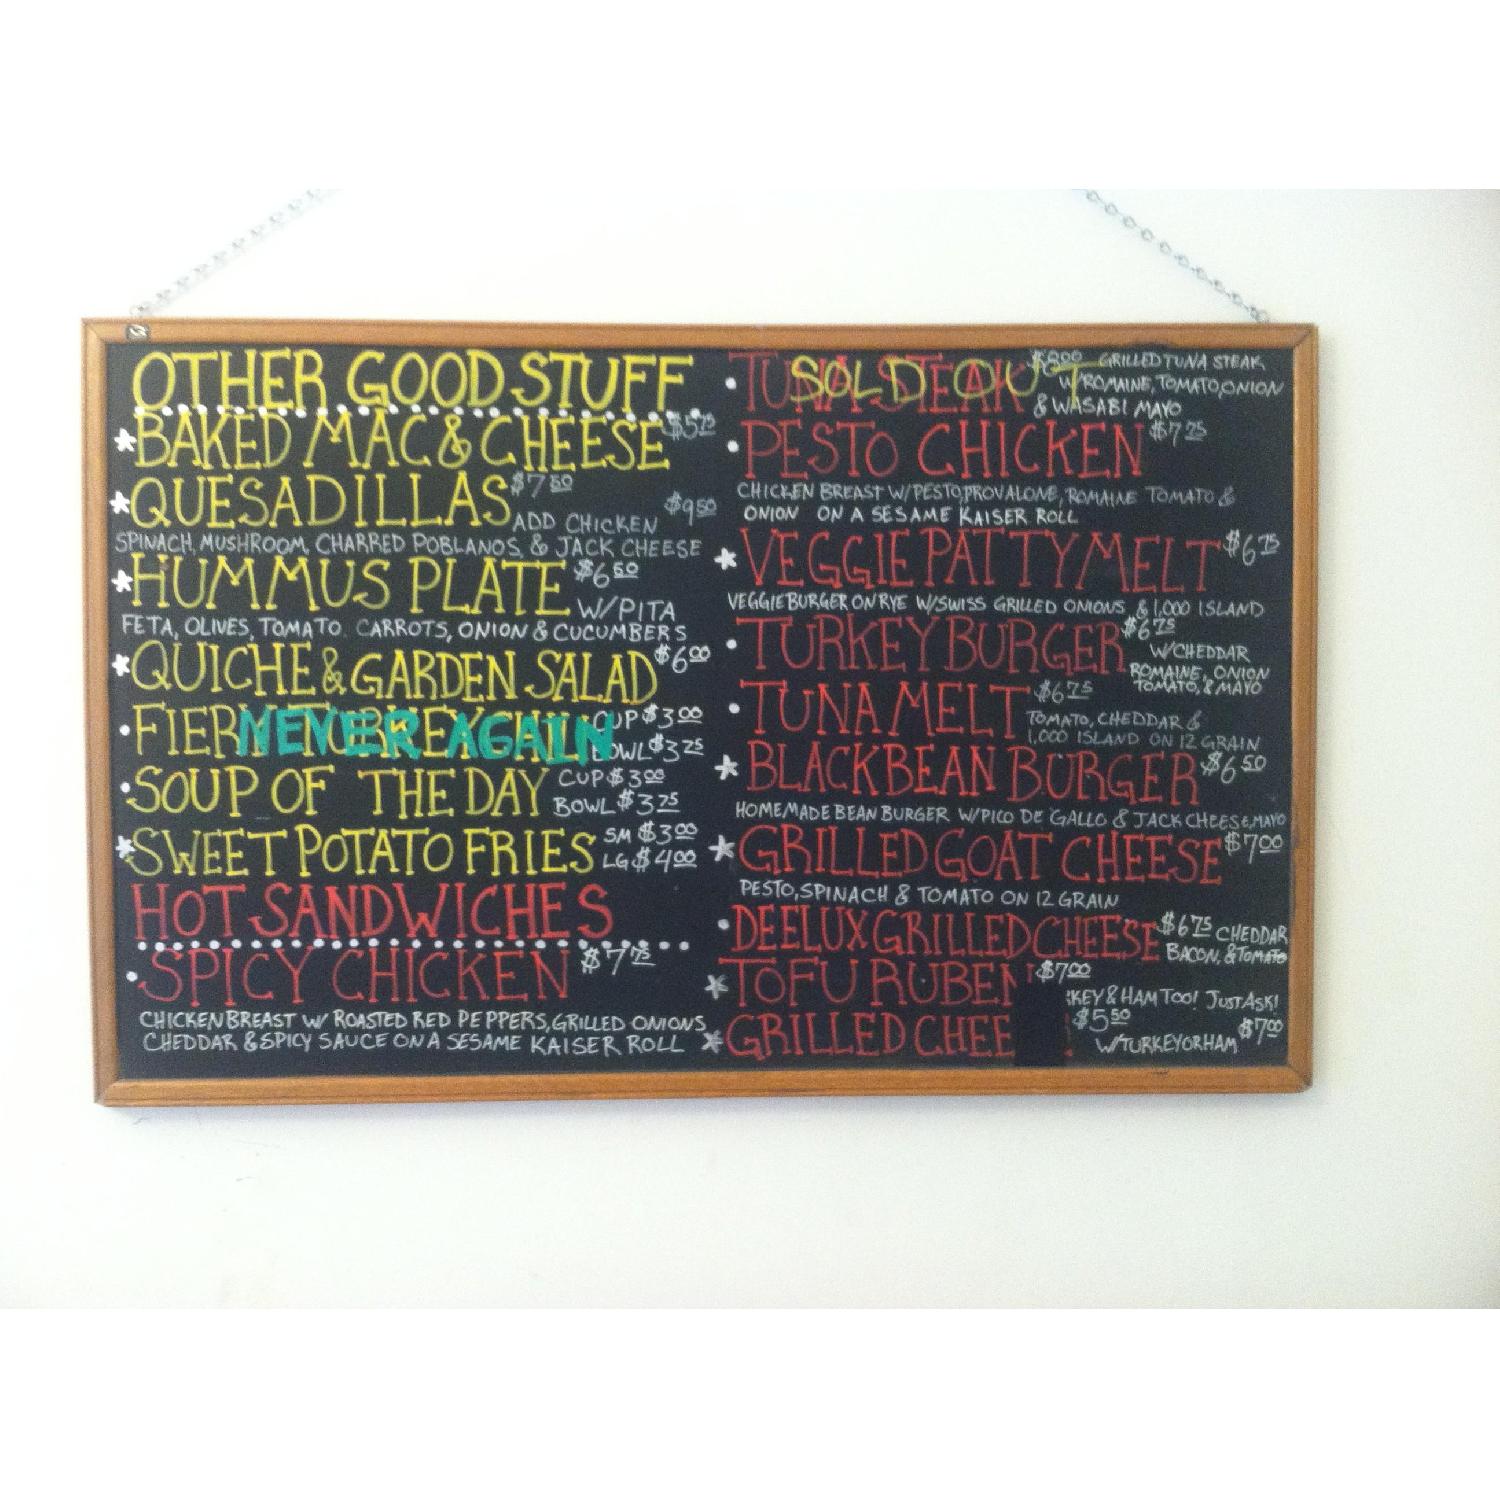 OTHER GOOD STUFF
* BAKED MAC & CHEESE $5.75
* QUESADILLAS $7.50
ADD CHICKEN $9.50
SPINACH, MUSHROOM, CHARRED POBLANOS, & JACK CHEESE
* HUMMUS PLATE $6.50
W/PITA
FETA, OLIVES, TOMATO, CARROTS, ONION & CUCUMBERS
* QUICHE & GARDEN SALAD $6.00
NEVER AGAIN CUP $3.00
BOWL $3.25
• SOUP OF THE DAY CUP $3.00
BOWL $3.75
* SWEET POTATO FRIES SM $3.00
LG $4.00
HOT SANDWICHES
• SPICY CHICKEN $7.75
CHICKEN BREAST W/ ROASTED RED PEPPERS, GRILLED ONIONS
CHEDDAR & SPICY SAUCE ON A SESAME KAISER ROLL
• TUNA STEAK SOLD OUT $8.00 GRILLED TUNA STEAK
W/ROMAINE, TOMATO, ONION
& WASABI MAYO
• PESTO CHICKEN $7.25
CHICKEN BREAST W/PESTO, PROVALONE, ROMAINE TOMATO &
ONION ON A SESAME KAISER ROLL
* VEGGIE PATTY MELT $6.75
VEGGIE BURGER ON RYE W/SWISS GRILLED ONIONS, & 1,000 ISLAND
• TURKEY BURGER $6.75
W/CHEDDAR
ROMAINE, ONION
TOMATO, & MAYO
• TUNA MELT $6.75
TOMATO, CHEDDAR &
1,000 ISLAND ON 12 GRAIN
* BLACK BEAN BURGER $6.50
HOMEMADE BEAN BURGER W/PICO DE GALLO & JACK CHEESE, MAYO
* GRILLED GOAT CHEESE $7.00
PESTO, SPINACH & TOMATO ON 12 GRAIN
• DEELUX GRILLED CHEESE $6.75 CHEDDAR
BACON, & TOMATO
* TOFU RUBEN $7.00
& HAM TOO! JUST ASK!
* GRILLED $5.50
W/TURKEY OR HAM $7.00